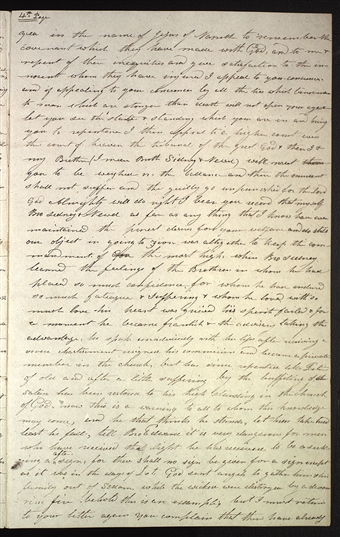 4th Page
you in the name of Jesus of Nazareth to remember the
covenant which they have made with God and to me &
repent of their iniquities and give satisfaction to the in-
nocent whom they have injured I appeal to your conciences
and if appealing to your conciences by all the ties which bind man
to man which are stronger than death will not open your eyes and
let you see the state & standing which you are in and bring
you to repentance I then appeal to a higher court even
the court of heaven the tribunal of the great God & there I &
my Brother (I mean Broth Sidney & Newel) will meet
you to be weighed in the balance and there the innocent
shall not suffer and the guilty go unpunished for the Lord
God Almighty will do right I bear you record that myself
Bro Sidney & Newel as far as any thing that I know have ever
maintained the purest desires for your welfare and do still
our object in going to Zion was altogether to keep the com-
mandment of the most high when Bro Sidney
learned the feelings of the Brethren in whom he had
placed so much confidence for whom he had endured
so much fateague & suffering & whom he loved with so
much love his heart was grieved his spirits failed & for
a moment he became frantick & the adversary taking the
advantage, he spake unadvisedly with his lips after receiving a
severe chastisement resigned his commission and became a private
member in the church, but has since repented like Peter
of old and after a little suffering by the buffiting of
satan has been restored to his high standing in the church
of God, now this is a warning to all to whom this knowledge
may come, and he that thinks he stands, let him take heed
least he fall, tell Bro it is very dangerous for men
who have received the light he has received to be a seeker
after a sign, for there shall no sign be given for a sign except
as it was in the days of Lot God sent angels to gather him &
family out of Sodom while the wicked were distroyed by a devou-
ring fire behold this is an exsample, but I must return
to your letter again you complain that there have already